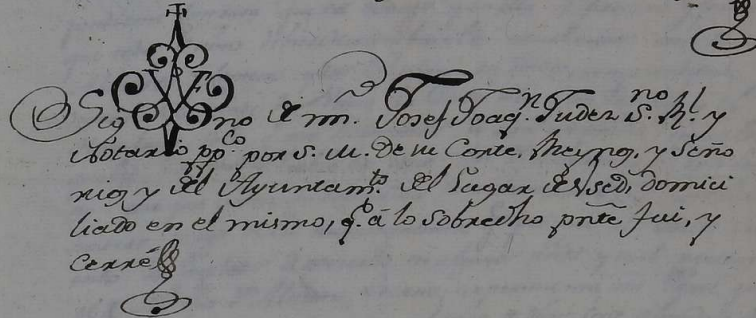 Sig no de mi Josef Joaqn. Tudez S.no Rl. y
Notario ppco. por S. M. De su Corte, Reynos, y Seño
rios y del Ayuntamto. del Lugar de Used, domici
liado en el mismo, q.e á lo sobredho pnte fui, y
cerré